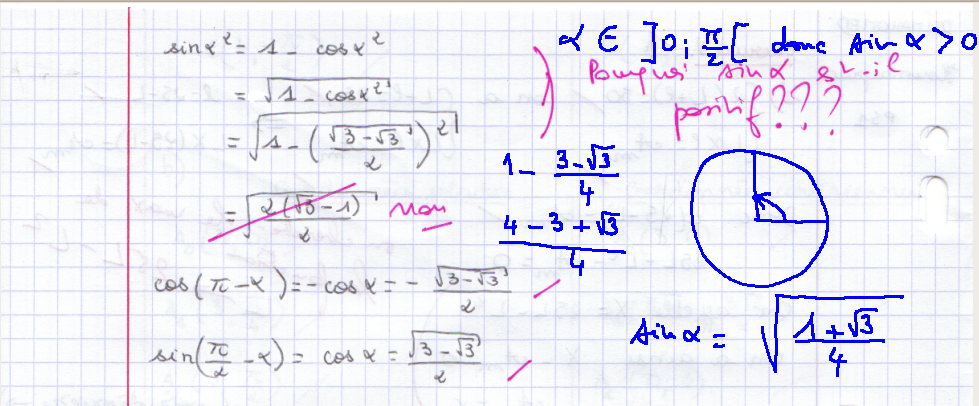 sinα² = 1 - cosα²
= √(1 - cosα²)
= √(1 - (√(3-√3)/2)²)
= √(2(√3-1)/2) non
cos(π-α) = -cosα = - √(3-√3)/2
sin(π/2 - α) = cosα = √(3-√3)/2
α ∈ ]0; π/2[ donc sin α > 0
Pourquoi sinα est-il
positif???
1 - (3-√3)/4
(4-3+√3)/4
sinα = √((1+√3)/4)